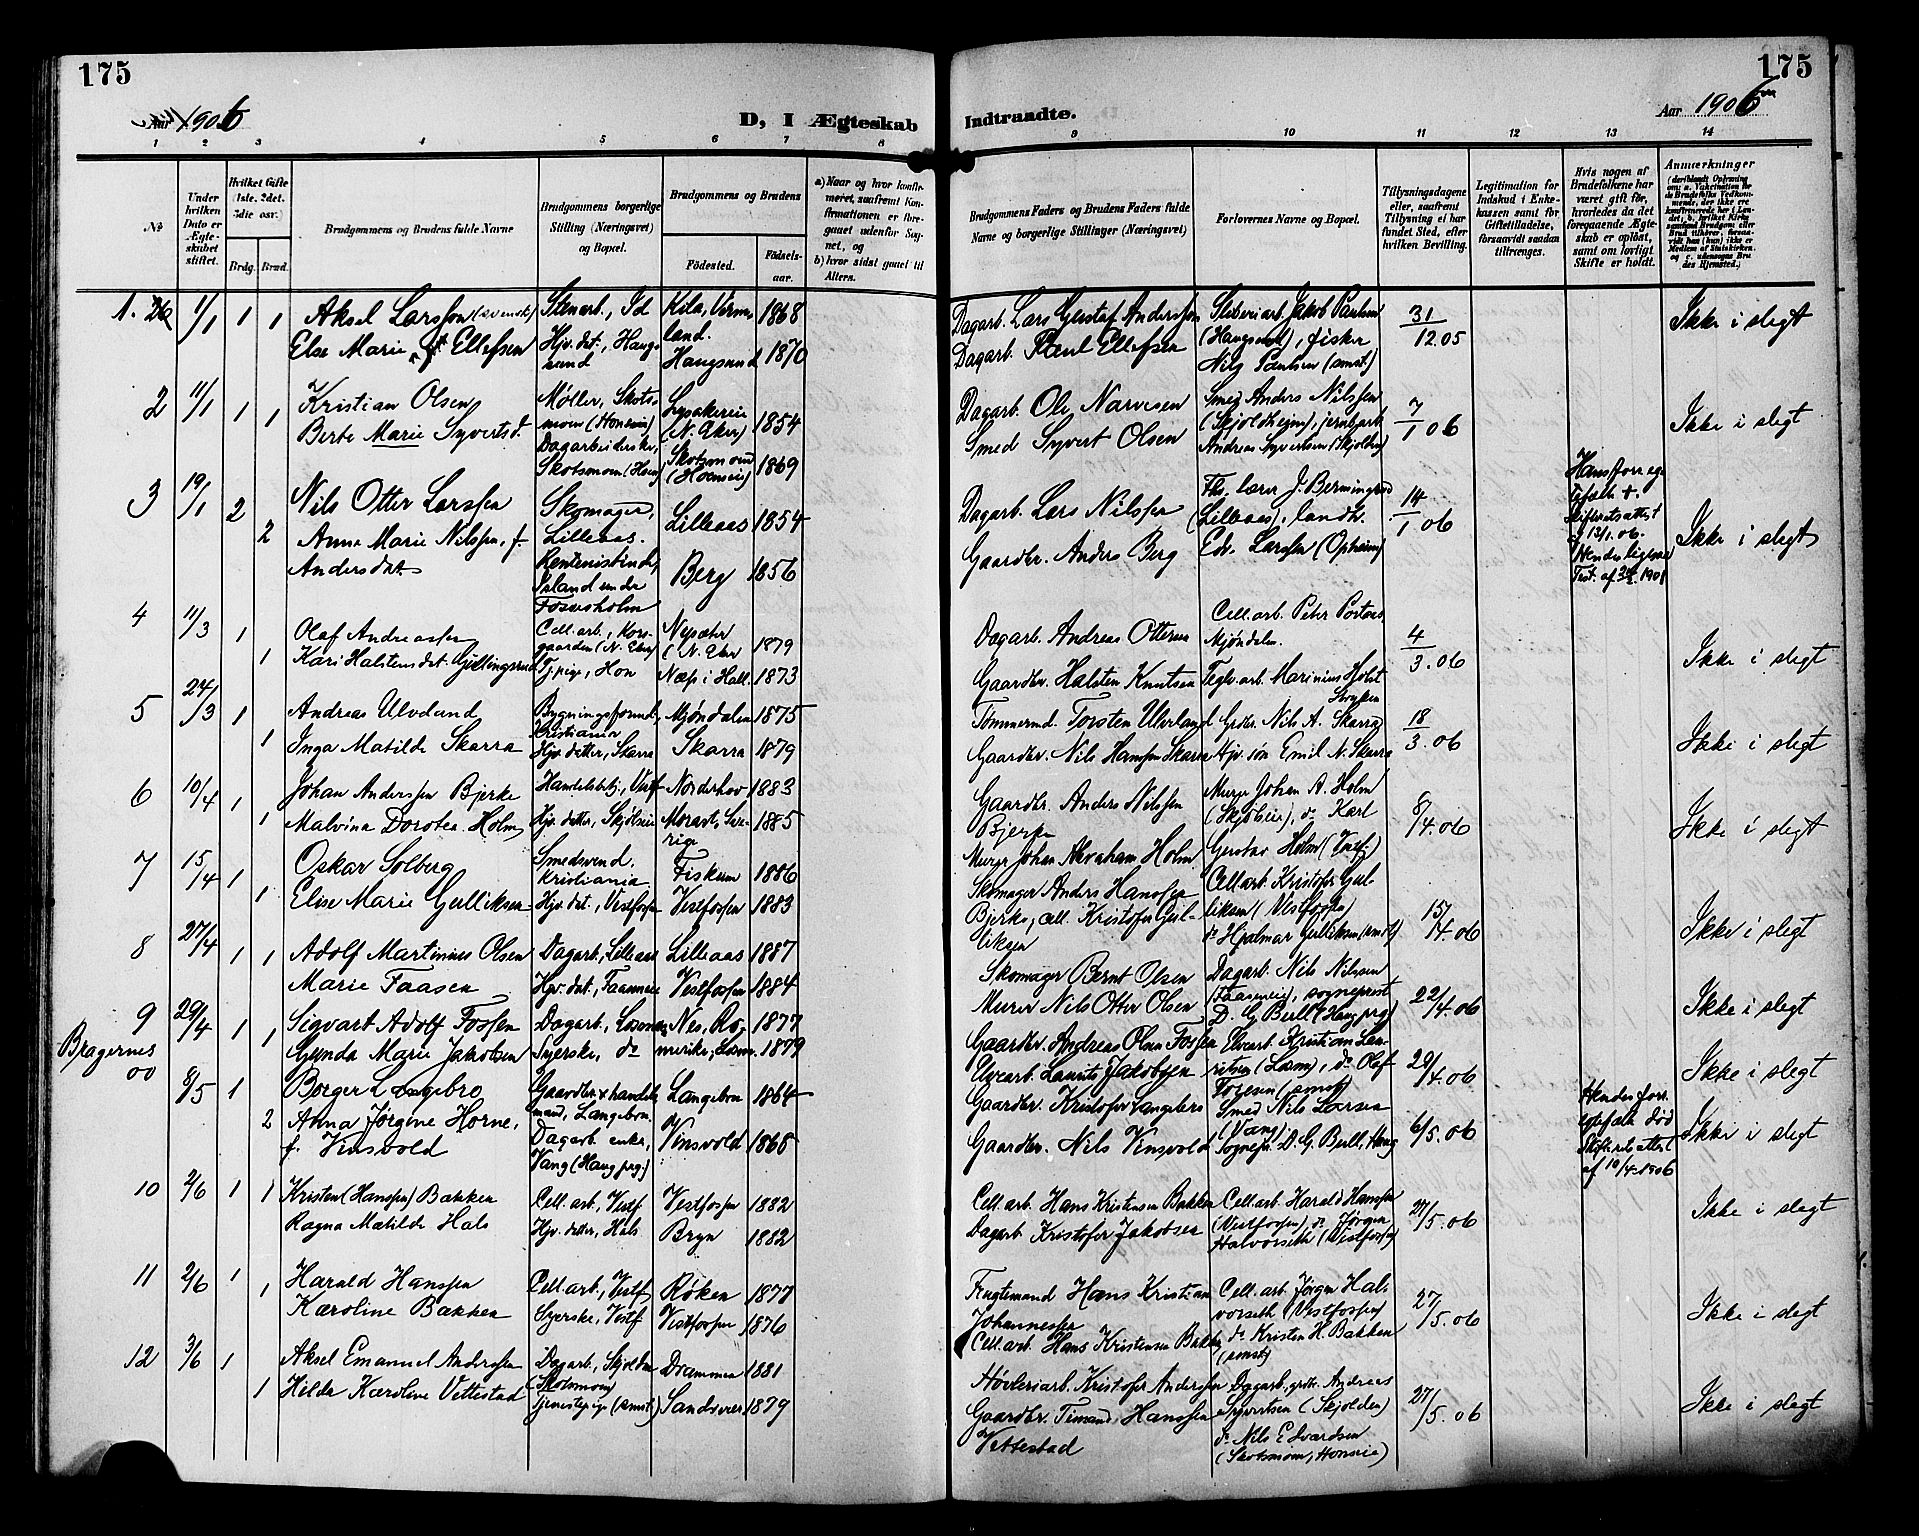 175
175
Aar 1906
D, I Ægteskab
Indtraadte.
Aar 1906
1 2 3 4 5 6 7 8
9 10 11 12 13 14
№
Under hvilken Dato er Ægteskabet stiftet.
Hvilket Gifte (1ste, 2det, 3die osv.)
Brdg. Brud.
Brudgommens og Brudens fulde Navne
Brudgommens borgerlige Stilling (Næringsvei) og Bopæl.
Brudgommens og Brudens
Fødested.
Fødselsaar.
a) Naar og hvor konfirmeret, saafremt Konfirmationen er foregaaet udenfor Sognet, og
b) hvor sidst gaaet til Alters.
Brudgommens Faders og Brudens Faders fulde Navne og borgerlige Stillinger (Næringsvei)
Forlovernes Navne og Bopæl.
Tillysningsdagene eller, saafremt Tillysning ei har fundet Sted, efter hvilken Bevilling.
Legitimation for Indskud i Enkekassen samt for Giftetilladelse, forsaavidt saadan tiltrænges.
Hvis nogen af Brudefolkene har været gift før, hvorledes da det foregaaende Ægteskab er opløst, samt om lovligt Skifte er holdt.
Anmærkninger
1. 1/1 1 1
Aksel Larssøn (svensk) Stenarb., Id Kila, Vermland. 1868
Else Marie Ellefsen Hjv. dat., Haugsund Haugsund 1870
Dagarb. Lars Gustaf Anderssøn
Dagarb. Paul Ellefsen
Sliberiarb. Jakob Paulsen (Haugsund), fisker Nils Paulsen (smst)
31/12 05
Ikke i slegt
2 11/1 1 1
Kristian Olsen Møller, Skotsmoen (Honseie) Lysakereie (N. Eker) 1854
Berte Marie Syvertsd. Dagarbeiderske, Skotsmoen 1869
Dagarb. Ole Narvesen
Smed Syvert Olsen
Smed Anders Nilssen (Skjoldheim), jernbarb. Andreas Syvertsen (Skjolden)
7/1 06
Ikke i slegt
3 19/1 2 2
Nils Otter Larssen Skomager, Lilleaas. Lilleaas 1854
Anna Marie Nilssen, f. Andersdat. Berg 1856
Dagarb. Lars Nilssen
Gaardbr. Anders Berg
Fhv. lærer J. Bermingrud (Lilleaas), landh. Edv. Larssen (Opheim)
14/1 06
Ikke i slegt
4 11/3 1 1
Olaf Andreassen Cell. arb., Korsgaarden (N. Eker) (N. Eker) 1879
Kari Halstensdat. Gjellingsrud Tj. pige, Hon Næs i Hall. 1873
Dagarb. Andreas Ottersen
Gaardbr. Halsten Knutsen
Cell. arb. Peter Mjøndalen.
Teglv. arb. Marinius
4/3. 06
Ikke i slegt
5 24/3 1 1
Andreas Ulvelund Kristiania Mjøndalen 1875
Inga Matilde Skarra Hjv. datter, Skarra Skarra 1879
Tømmermd. Torsten Ulverland
Gaardbr. Nils Hanssen Skarra
Grdbr. Nils A. Skarra
Hjv. søn Emil N. Skarra
18/3. 06
Ikke i slegt
6 10/4 1 1
Johan Anderssen Bjerke Handelsbetj., Vestf. Norderhov 1883
Malvina Dorotea Holm Hjv. datter, Skjølseie Sverige 1885
Gaardbr. Anders Nilssen Bjerke
Murer Johan Abraham Holm
Murer Johan A. Holm (Skjølseie), do Karl Gustav Holm (Vestf.)
8/4. 06
Ikke i slegt
7 15/4 1 1
Oskar Solberg Smedsvend. Kristiania Fiskum 1886
Elise Marie Gulliksen Hjv. dat., Vestfossen Vestfossen 1883
Skomager Anders Hanssen
Bjerke, cell. Kristofer Gulliksen
Cell. arb. Kristofer Gulliksen (Vestfossen)
do Hjalmar Gulliksen (smst)
15/4. 06
Ikke i slegt
8 27/4 1 1
Adolf Martinius Olsen Dagarb., Lilleaas Lilleaas 1887
Marie Faasen Hjv. dat., Faaseneie Vestfossen 1884
Skomager Bernt Olsen
Murer Nils Otter Olsen
Dagarb. Nils Nilssen (Faaseneie), sogneprest D. G. Bull (Haug prg.)
22/4. 06
Ikke i slegt
9 29/4 1 1
Sigvart Adolf Fossen Dagarb., Losmoen Nes, Romerike 1877
Gunda Marie Jakobsen Syerske, do 1879
Gaardbr. Andreas Olsen Fossen
Elvearb. Laurits Jakobsen
Elvearb. Kristian Lauritsen (Losm), do Olaf Fossen (smst)
29/4. 06
Ikke i slegt
Bragernes
00 8/5 1 2
Borger Langebro Gaardbr. & handelsmand, Langebro. Langebro 1864
Anna Jørgine Horne, f. Vinsvold Dagarb. enke, Vang (Haug prg.) Vinsvold 1868
Gaardbr. Kristofer Langebro
Gaardbr. Nils Vinsvold
Smed Nils Larsen (Vang)
Sognepr. D. G. Bull, Haug
6/5. 06
Hendes forr. egtefælle død
Skifterets attest af 10/4 1906
Ikke i slegt
10 2/6 1 1
Kristen (Hanssen) Bakken Cell. arb., Vestf Vestfossen 1882
Ragna Matilde Hals Hjv. datter, Hals Bryn 1882
Cell. arb. Hans Kristensen Bakken
Dagarb. Kristofer Jakobsen
Cell. arb. Harald Hanssen (Vestfossen), do Jørgen Halvorseth (Vestfossen)
27/5. 06
Ikke i slegt
11 2/6 1 1
Harald Hanssen Cell. arb., Vestf Røken 1877
Karoline Bakken Syerske, Vestf Vestfossen 1876
Hans Kristian Johannessen
Cell. arb. Hans Kristensen Bakken
Cell. arb. Jørgen Halvorseth (Vestfossen)
do Kristen H. Bakken (smst)
27/5. 06
Ikke i slegt
12 3/6 1 1
Aksel Emanuel Anderssen Dagarb., Skjolden (Skotsmoen) Drammen 1881
Hilda Karoline Vettestad Tjenestepige (smst) Sandsvær 1879
Høvleriarb. Kristofer Anderssen
Gaardbr. Timand Hanssen Vettestad
Dagarb. Andreas Syvertsen (Skjolden)
do Nils Edvardsen (Skotsmoen, Honseie)
27/5. 06
Ikke i slegt